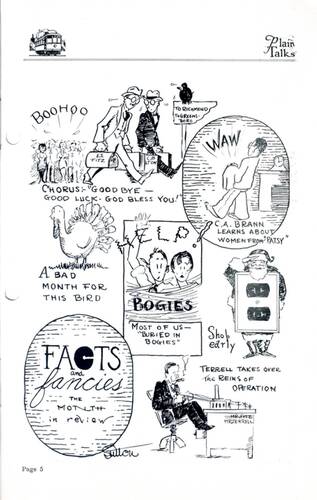 Plain
Talks
BOOHOO
TO RICHMOND
CHORUS:- "GOOD BYE —
GOOD LUCK - GOD BLESS YOU!"
WAW
C.A. BRANN
LEARNS ABOUT
WOMEN FROM "PATSY"
A BAD
MONTH FOR
THIS BIRD
HELP!
BOGIES
MOST OF US —
"BURIED IN
BOGIES"
Shop
early
FACTS
and
fancies
THE
MONTH
in review
TERRELL TAKES OVER
THE REINS OF
OPERATION
Sutton
Page 5